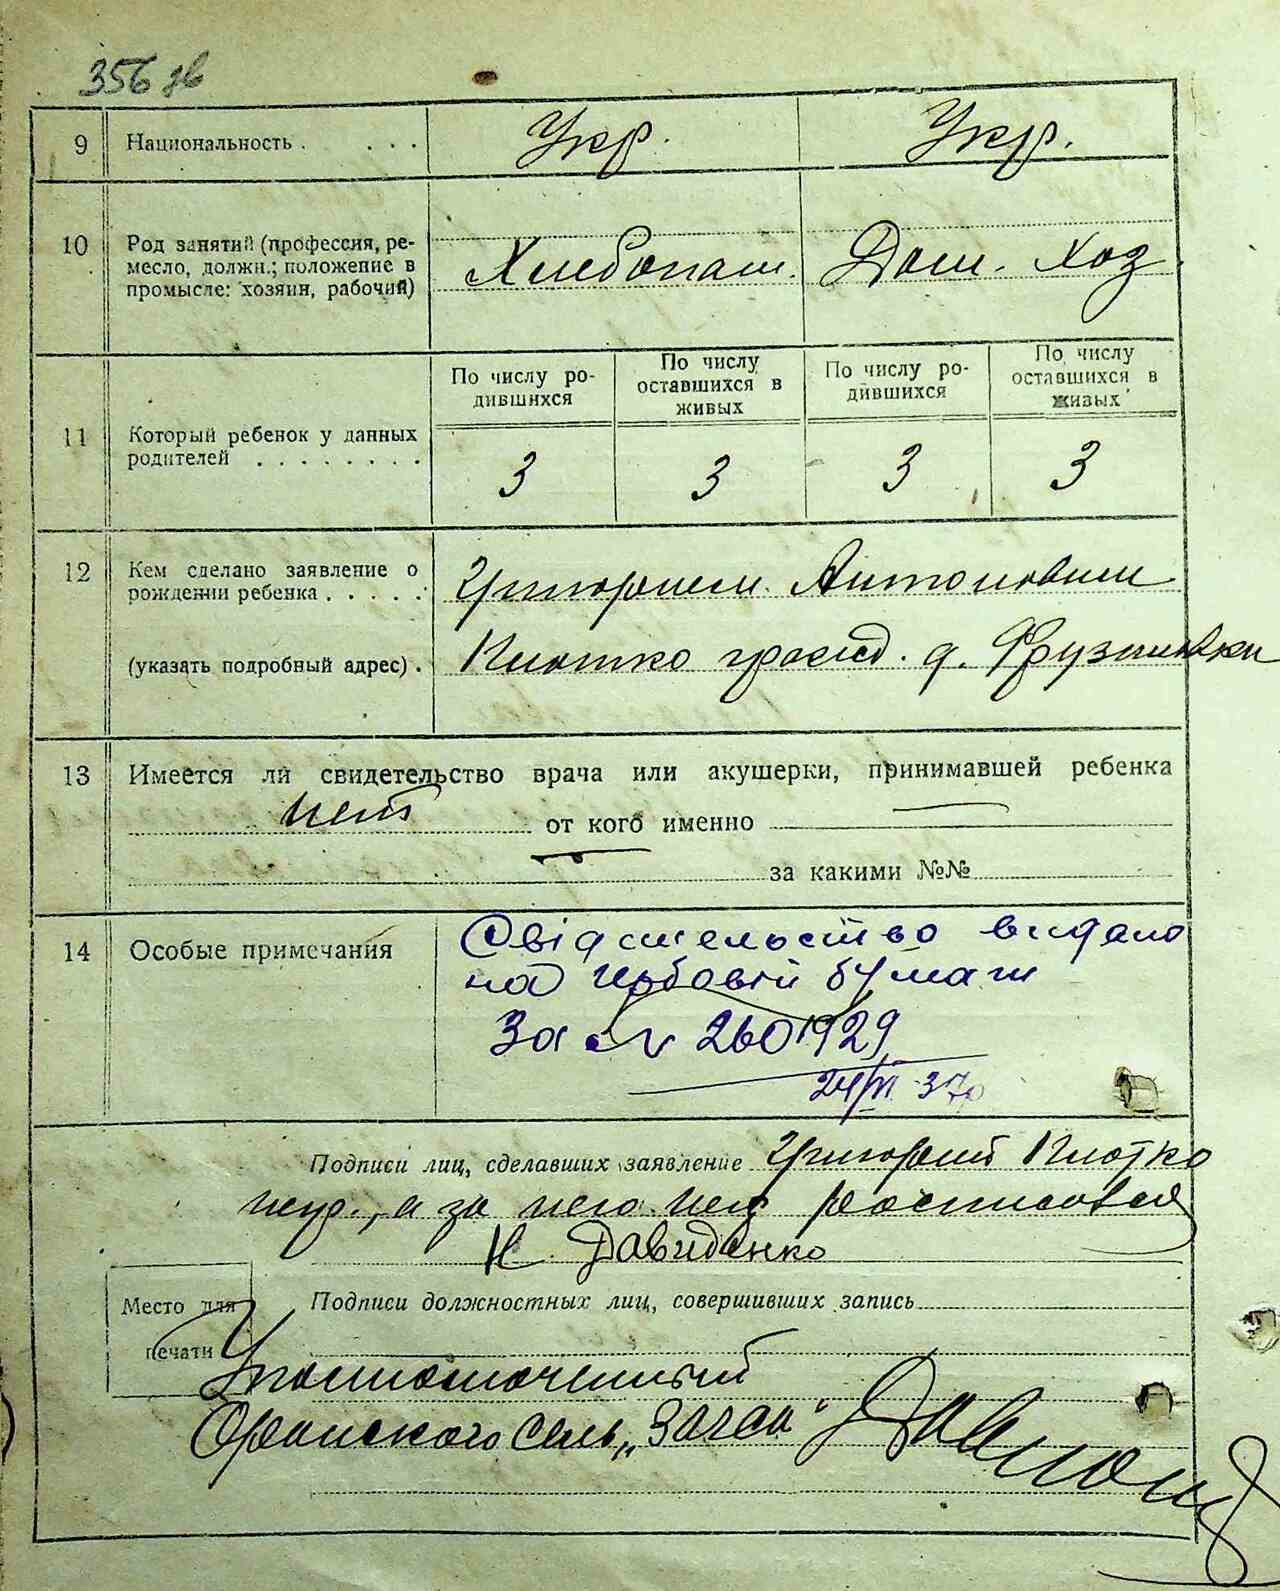 356 зв
9 Национальность . . . . Укр. Укр.
10 Род занятий (профессия, ре-
месло, должн.; положение в
промысле: хозяин, рабочий) Хлебопаш. Дом. Хоз.
11 Который ребенок у данных
родителей . . . . . . . .
По числу ро-
дившихся
По числу
оставшихся в
живых
По числу ро-
дившихся
По числу
оставшихся в
живых
3 3 3 3
12 Кем сделано заявление о
рождении ребенка . . . . . Григорием Антоновым
(указать подробный адрес) . Клотко гражд. д.
13 Имеется ли свидетельство врача или акушерки, принимавшей ребенка
нет от кого именно
за какими №№
14 Особые примечания Свідительство видано
на гербовій бумаги
За № 2601929
24/VI 37р
Подписи лиц, сделавших заявление Григорий Клотко
негр., а за него нег росписовался
Н Давиденко
Место для
печати
Подписи должностных лиц, совершивших запись
Уполномоченный
Оранского сель „Загса"